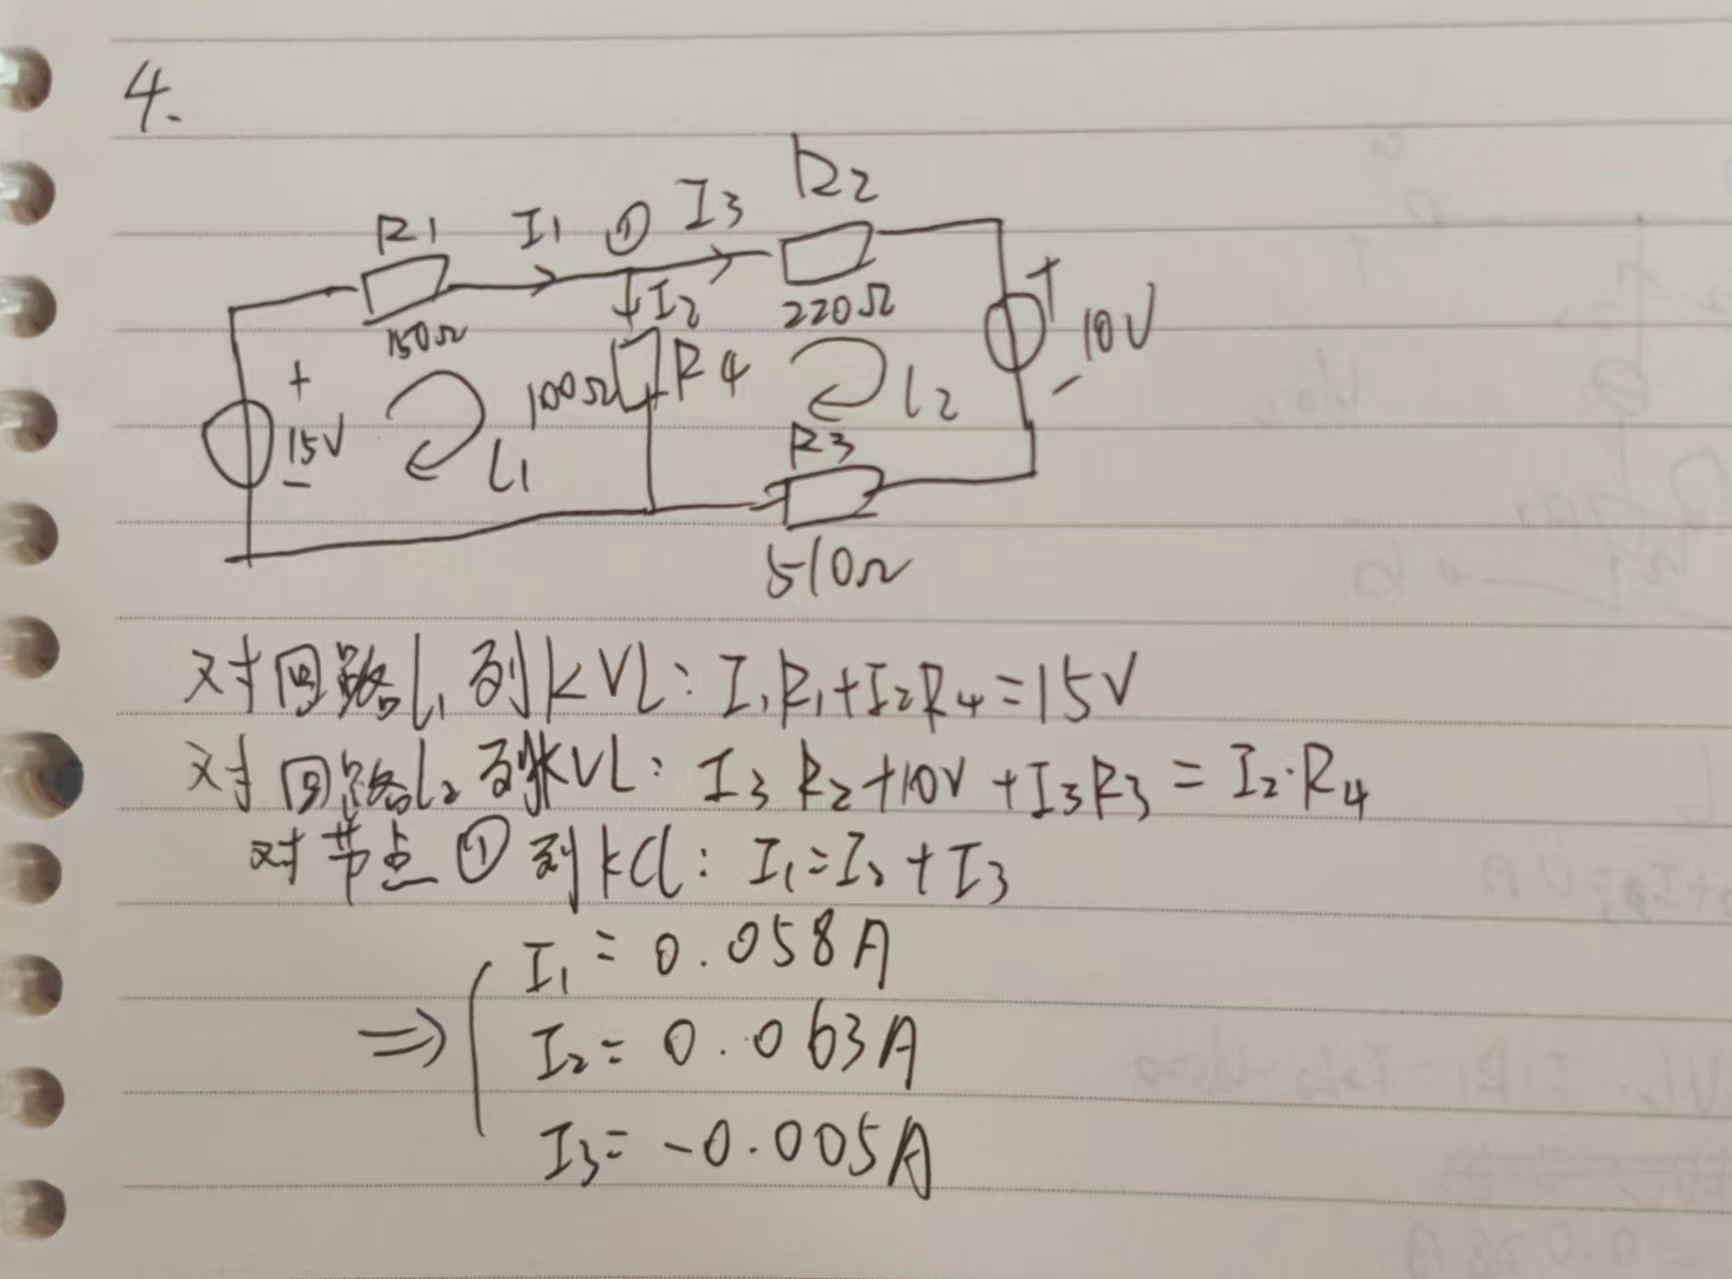 4.
R1 I1 ① I3 R2
150Ω I2 220Ω
+ 15V − L1 100Ω R4 L2 + 10V −
R3
510Ω
对回路L1列KVL: I1R1+I2R4=15V
对回路L2列KVL: I3R2+10V+I3R3=I2·R4
对节点①列KCL: I1=I2+I3
⇒ { I1=0.058A
I2=0.063A
I3=-0.005A